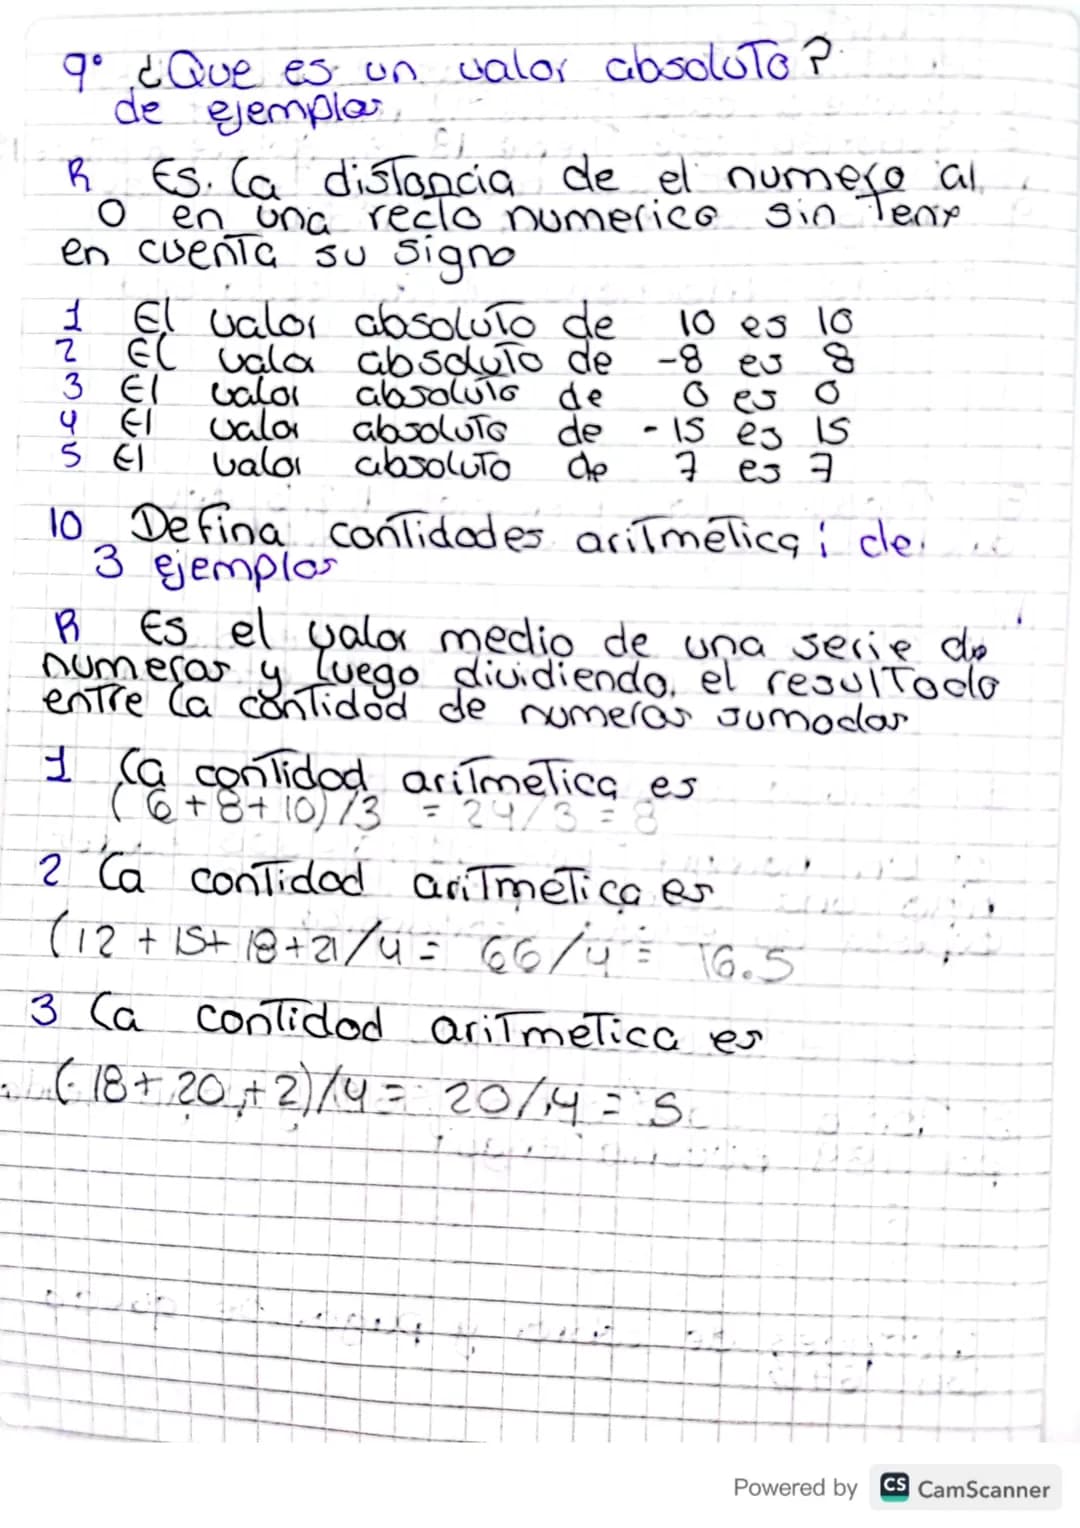 9° ¿Que es un valor absoluto?
de ejemplos
R Es. la distancia de el numero al
0 en una recta numerica sin Tener
en cuenta su signo
1 El valor absoluto de 10 es 10
2 El valor absoluto de -8 es 8
3 El valor absoluto de 0 es 0
4 El valor absoluto de -15 es 15
5 El valor absoluto de 7 es 7
10 Defina cantidades aritmética; de
3 ejemplos
R Es el valor medio de una serie de
numeros y luego dividiendo. el resultado
entre la cantidad de numeros sumados
1 La cantidad aritmetica es
(6+8+10)/3 = 24/3 = 8
2 La cantidad aritmetica es
(12 + 15+ 18+21/4 = 66/4 = 16.5
3 La cantidad aritmetica es
(-18+20+2)/4 = 20/4 = 5
Powered by CS CamScanner